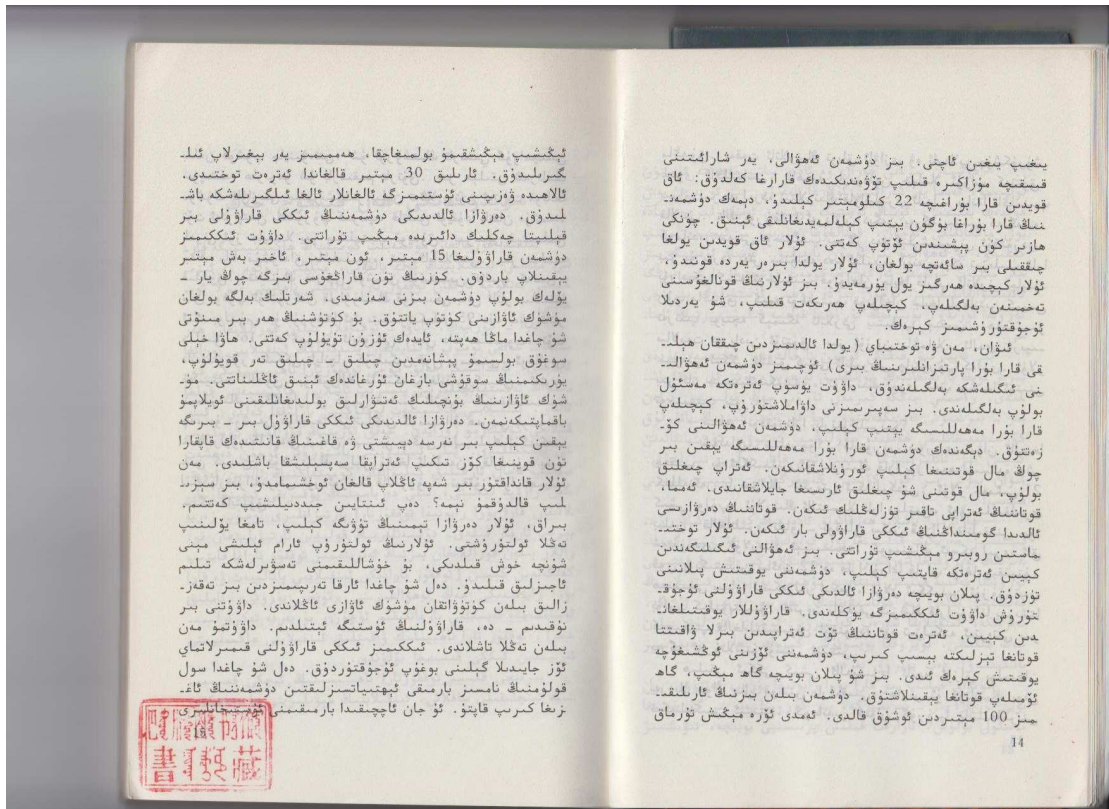 يىغىپ يىغىن ئاچتى، بىز دۈشمەن ئەھۋالى، يەر شارائىتىنى
قىسقىچە مۇزاكىرە قىلىپ تۆۋەندىكىدەك قارارغا كەلدۇق: ئاق
قويدىن قارا بۇراغىچە 22 كىلومېتىر كېلىدۇ، دېمەك دۈشمەنـ
نىڭ قارا بۇراغا بۈگۈن يېتىپ كېلەلمەيدىغانلىقى ئېنىق. چۈنكى
ھازىر كۈن پېشىندىن ئۆتۈپ كەتتى. ئۇلار ئاق قويدىن يولغا
چىققىلى بىر سائەتچە بولغان، ئۇلار يولدا بىرەر يەردە قونىدۇ،
ئۇلار كېچىدە ھەرگىز يول يۈرمەيدۇ. بىز ئۇلارنىڭ قونالغۇسىنى
تەخمىنەن بەلگىلەپ، كېچىلەپ ھەرىكەت قىلىپ، شۇ يەردىلا
ئۇجۇقتۇرۇشىمىز كېرەك.
ئىۋان، مەن ۋە توختىباي (يولدا ئالدىمىزدىن چىققان ھېلىـ
قى قارا بۇرا پارتىزانلىرىنىڭ بىرى) ئۈچىمىز دۈشمەن ئەھۋالىـ
نى ئىگىلەشكە بەلگىلەندۇق، داۋۇت يۈسۈپ ئەترەتكە مەسئۇل
بولۇپ بەلگىلەندى. بىز سەپىرىمىزنى داۋاملاشتۇرۇپ، كېچىلەپ
قارا بۇرا مەھەللىسىگە يېتىپ كېلىپ، دۈشمەن ئەھۋالىنى كۆـ
زەتتۇق. دېگەندەك دۈشمەن قارا بۇرا مەھەللىسىگە يېقىن بىر
چوڭ مال قوتىنىغا كېلىپ ئورۇنلاشقانىكەن. ئەتراپ چىغلىق
بولۇپ، مال قوتىنى شۇ چىغلىق ئارىسىغا جايلاشقانىدى. ئەمما،
قوتاننىڭ ئەتراپى تاقىر تۈزلەڭلىك ئىكەن. قوتاننىڭ دەرۋازىسى
ئالدىدا گومىنداڭنىڭ ئىككى قاراۋولى بار ئىكەن. ئۇلار توختىـ
ماستىن روبىرو مېڭىشىپ تۇراتتى. بىز ئەھۋالنى ئىگىلىگەندىن
كېيىن ئەترەتكە قايتىپ كېلىپ، دۈشمەننى يوقىتىش پىلانىنى
تۈزدۇق. پىلان بويىچە دەرۋازا ئالدىكى ئىككى قاراۋۇلنى ئۇجۇقـ
تۇرۇش داۋۇت ئىككىمىزگە يۈكلەندى. قاراۋۇللار يوقىتىلغانـ
دىن كېيىن، ئەترەت قوتاننىڭ تۆت ئەتراپىدىن بىرلا ۋاقىتتا
قوتانغا تېزلىكتە بېسىپ كىرىپ، دۈشمەننى ئۆزىنى ئوڭشىغۇچە
يوقىتىش كېرەك ئىدى. بىز شۇ پىلان بويىچە گاھ مېڭىپ، گاھ
ئۆمىلەپ قوتانغا يېقىنلاشتۇق. دۈشمەن بىلەن بىزنىڭ ئارىلىقىـ
مىز 100 مېتىردىن ئوشۇق قالدى. ئەمدى ئۆرە مېڭىش تۇرماق
14
ئېڭىشىپ مېڭىشقىمۇ بولمىغاچقا، ھەممىمىز يەر بېغىرلاپ ئىلـ
گىرىلىدۇق. ئارىلىق 30 مېتىر قالغاندا ئەترەت توختىدى.
ئالاھىدە ۋەزىپىنى ئۈستىمىزگە ئالغانلار ئالغا ئىلگىرىلەشكە باشـ
لىدۇق. دەرۋازا ئالدىدىكى دۈشمەننىڭ ئىككى قاراۋۇلى بىر
قېلىپتا چەكلىك دائىرىدە مېڭىپ تۇراتتى. داۋۇت ئىككىمىز
دۈشمەن قاراۋۇلىغا 15 مېتىر، ئون مېتىر، ئاخىر بەش مېتىر
يېقىنلاپ باردۇق. كۈزنىڭ تۈن قاراڭغۇسى بىزگە چوڭ يار ـ
يۆلەك بولۇپ دۈشمەن بىزنى سەزمىدى. شەرتلىك بەلگە بولغان
مۈشۈك ئاۋازىنى كۈتۈپ ياتتۇق. بۇ كۈتۈشنىڭ ھەر بىر مىنۇتى
شۇ چاغدا ماڭا ھەپتە، ئايدەك ئۇزۇن تۇيۇلۇپ كەتتى. ھاۋا خېلى
سوغۇق بولسىمۇ پېشانەمدىن چىلىق ـ چىلىق تەر قويۇلۇپ،
يۈرىكىمنىڭ سوقۇشى بازغان ئۇرغاندەك ئېنىق ئاڭلىناتتى. مۈـ
شۈك ئاۋازىنىڭ بۇنچىلىك ئەتىۋارلىق بولىدىغانلىقىنى ئويلاپمۇ
باقماپتىكەنمەن. دەرۋازا ئالدىدىكى ئىككى قاراۋۇل بىر ـ بىرىگە
يېقىن كېلىپ بىر نەرسە دېيىشتى ۋە قاغىنىڭ قانىتىدەك قاپقارا
تۈن قوينىغا كۆز تىكىپ ئەتراپقا سەپسېلىشقا باشلىدى. مەن
ئۇلار قانداقتۇر بىر شەپە ئاڭلاپ قالغان ئوخشىمامدۇ، بىز سېزىـ
لىپ قالدۇقمۇ نېمە؟ دەپ ئىنتايىن جىددىيلىشىپ كەتتىم.
بىراق، ئۇلار دەرۋازا تېمىنىڭ تۈۋىگە كېلىپ، تامغا يۆلىنىپ
تەڭلا ئولتۇرۇشتى. ئۇلارنىڭ ئولتۇرۇپ ئارام ئېلىشى مېنى
شۇنچە خوش قىلدىكى، بۇ خۇشاللىقىمنى تەسۋىرلەشكە تىلىم
ئاجىزلىق قىلىدۇ. دەل شۇ چاغدا ئارقا تەرىپىمىزدىن بىز تەقەزـ
زالىق بىلەن كۈتۈۋاتقان مۈشۈك ئاۋازى ئاڭلاندى. داۋۇتنى بىر
نۇقىدىم ـ دە، قاراۋۇلنىڭ ئۈستىگە ئېتىلدىم. داۋۇتمۇ مەن
بىلەن تەڭلا تاشلاندى. ئىككىمىز ئىككى قاراۋۇلنى قىمىرلاتماي
ئۆز جايىدىلا گېلىنى بوغۇپ ئۇجۇقتۇردۇق. دەل شۇ چاغدا سول
قولۇمنىڭ نامسىز بارمىقى ئېھتىياتسىزلىقتىن دۈشمەننىڭ ئاغـ
زىغا كىرىپ قاپتۇ. ئۇ جان ئاچچىقىدا بارمىقىمنى
藏
書